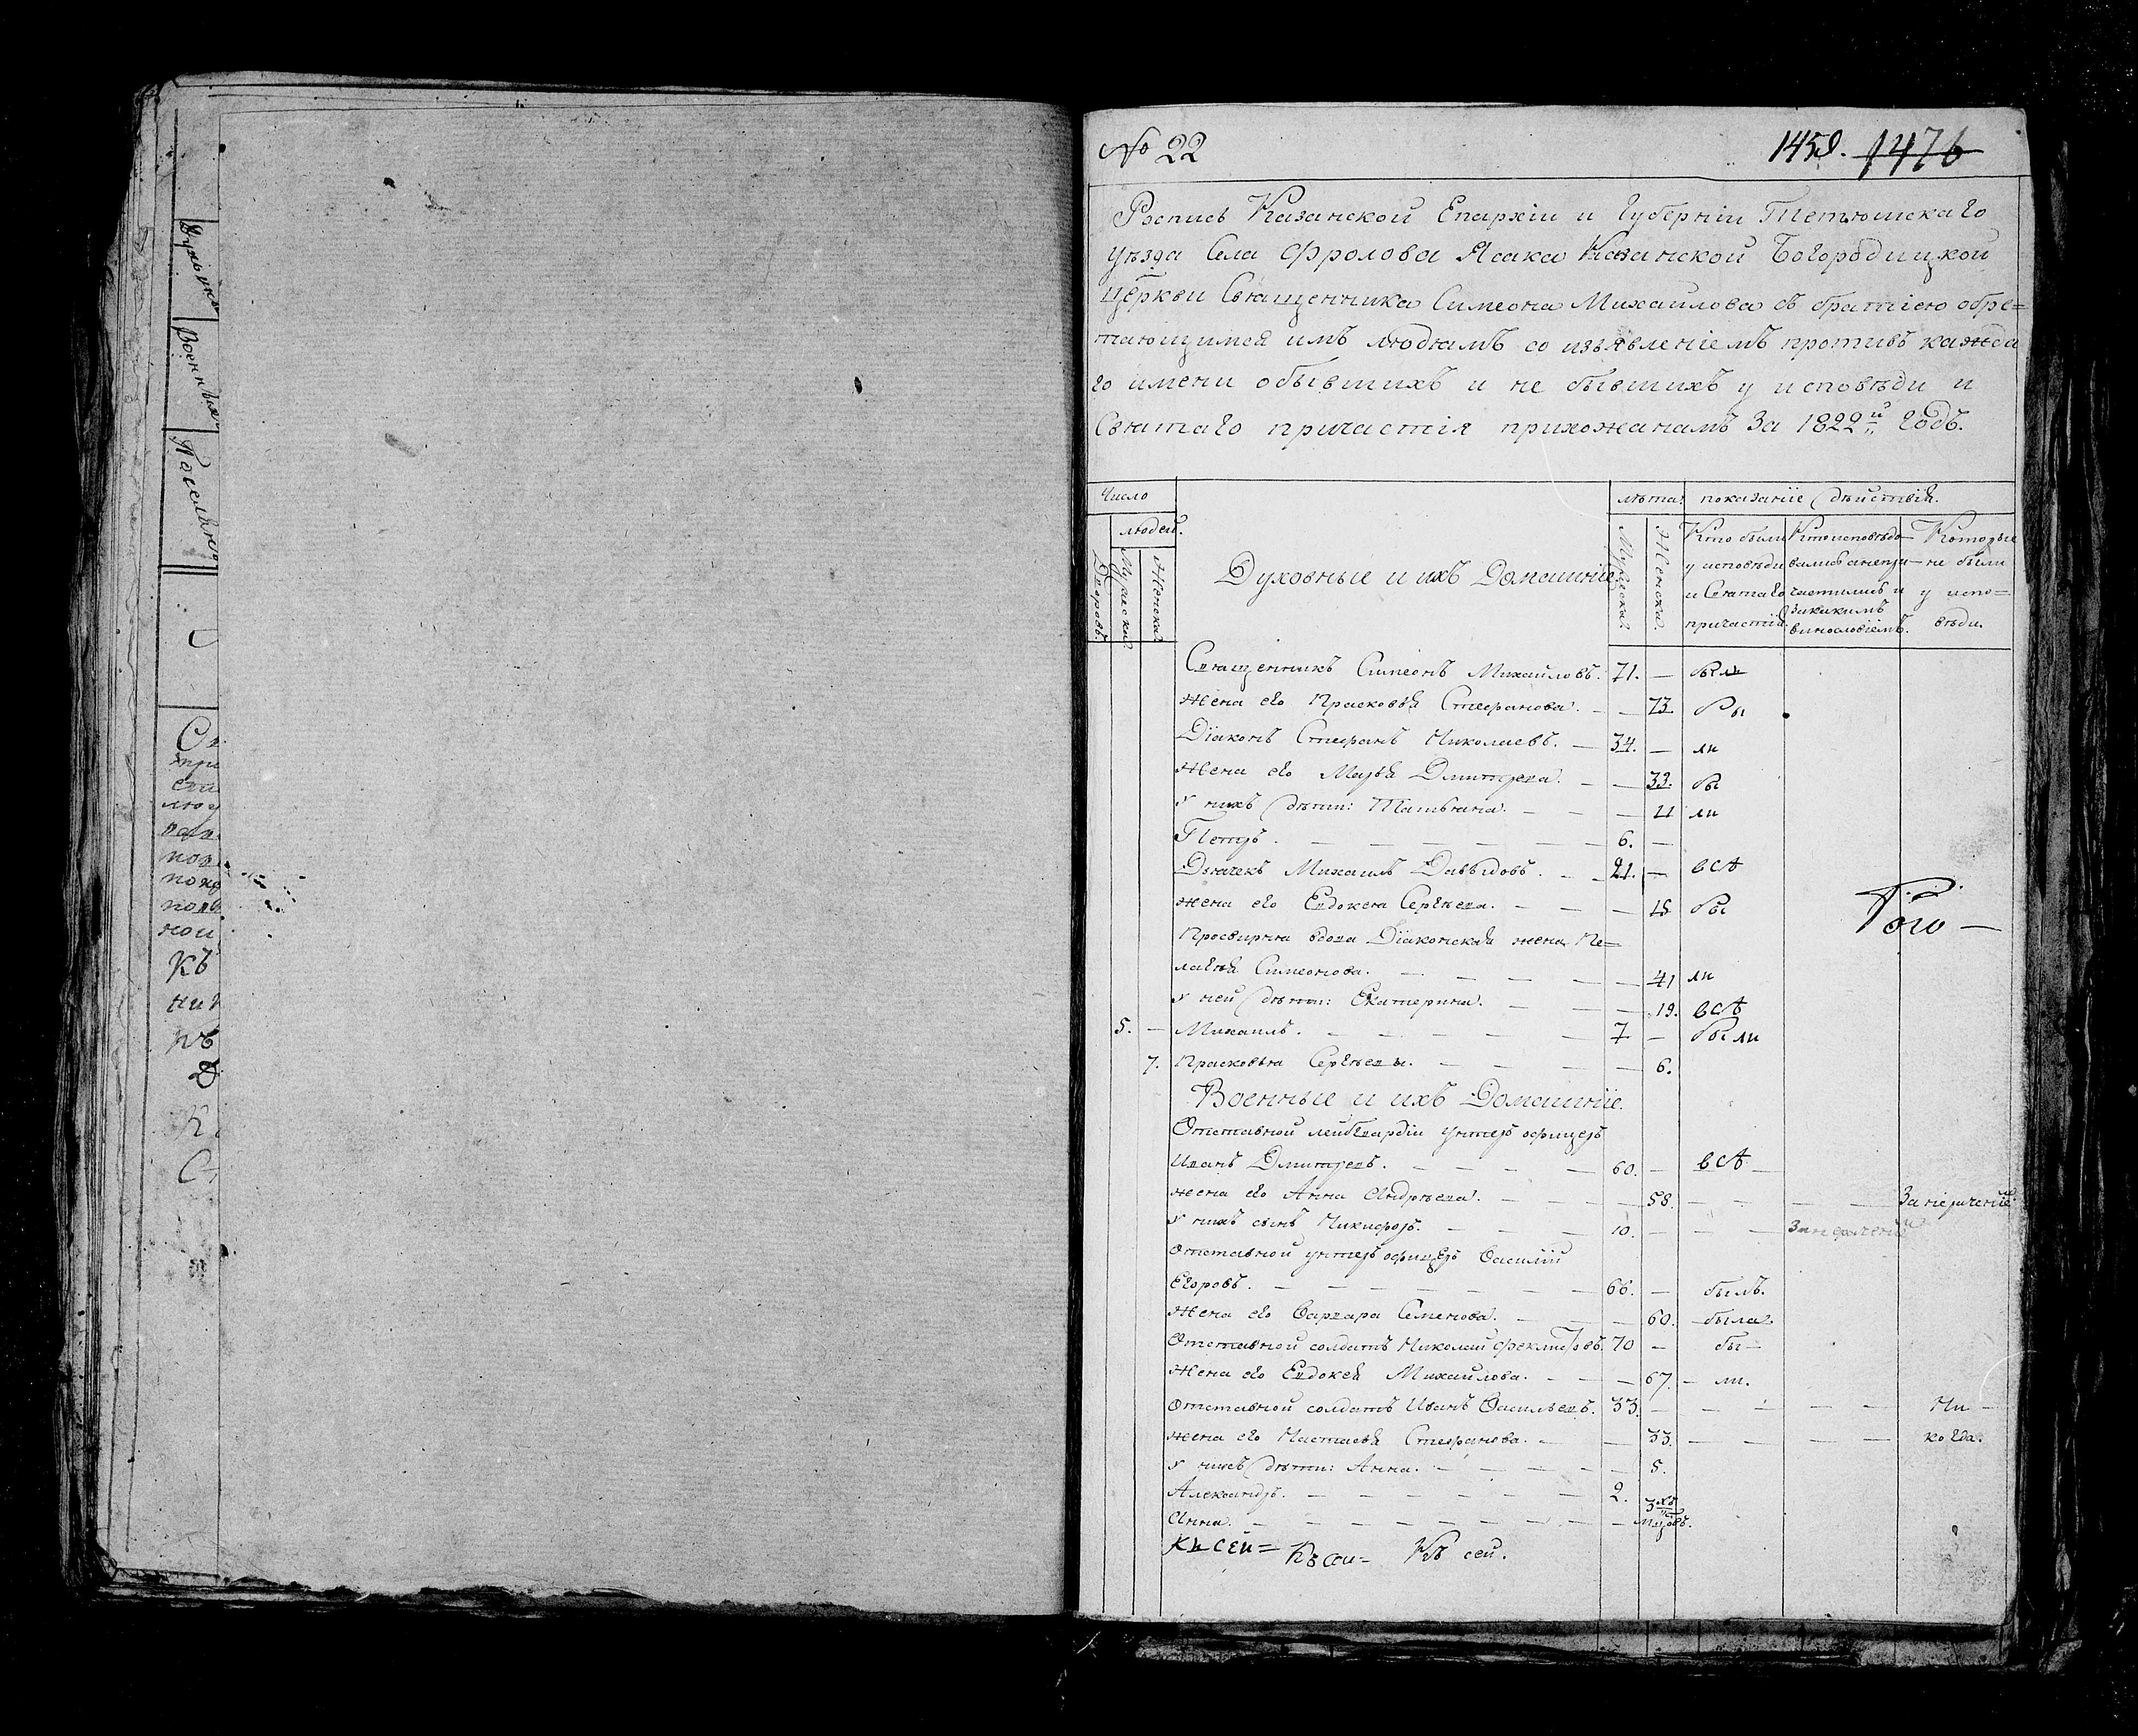 Духовны
Военныя
Поселян
№ 22
1458. 1476
Роспись Казанской Епархіи и Губерніи Тетюшскаго
уѣзда Села Фролова Ясака Казанской Богородицкой
Церкви Священника Симеона Михаилова съ братіею обре=
тающимся имъ людямъ со изъявленіемъ противъ каждо
го имени о бывшихъ и не бывшихъ у исповѣди и
Святаго причастія прихожанамъ за 1822й годъ.
Число
людей.
Дворовъ.
Мужеска
Женска.
Духовные и ихъ Домашніе
лѣта.
Мужеска.
Женска.
показаніе дѣйствія.
Кто были у исповѣди и Святаго причастія.
Кто исповѣдовались а не причастились и за какимъ винословіемъ.
Которые не были у испо= вѣди.
Священникъ Симеонъ Михаиловъ. 71. — были
Жена его Прасковья Стефанова. — — 73. Бы
Діаконъ Стефанъ Николаевъ. — 34. — ли
Жена его Марья Дмитрева. — — 33. Бы
У нихъ дѣти: Татьяна. — — — 11 ли
Петръ. — — — — — — 6. —
Дьячекъ Михаилъ Давыдовъ. — — 21. — всѣ
Жена его Евдокея Сергѣева. — — — 18 Бы
Просвирня вдова Діаконская жена Пе=
лагѣя Симеонова. — — — — — 41 ли
У ней дѣти: Екатерина. — — — 19. всѣ
5. — Михаилъ. — — — — — 7 — Были
7. Прасковья Сергѣевы. — — — — 6.
Рого —
Военные и ихъ Домашніе.
Отставной лейбгвардіи унтеръ офицеръ
Иванъ Дмитревъ. — — — — 60. — всѣ —
жена его Анна Андрѣева. — — — 58. — — — — За нераченіемъ
У нихъ сынъ Никифоръ. — — — 10. — — — За нераченіемъ
Отставной унтеръ офицеръ Василій
Егоровъ. — — — — — — — 66. — былъ.
Жена его Варвара Семенова. — — — 60. была
Отставной солдатъ Николай Феклистовъ. 70 — бы—
Жена его Евдокея Михаилова. — — — 67. — ли.
Отставной солдатъ Иванъ Васильевъ. 33. — — — — — Ни —
жена его Настасья Стефанова. — — 33. — — — — когда.
У нихъ дѣти: Анна. — — — — — 5.
Александръ. — — — — — — 2.
Анна. — — — — — — — — — 3хъ мцовъ.
Къ сей= Къ сей= Къ сей.